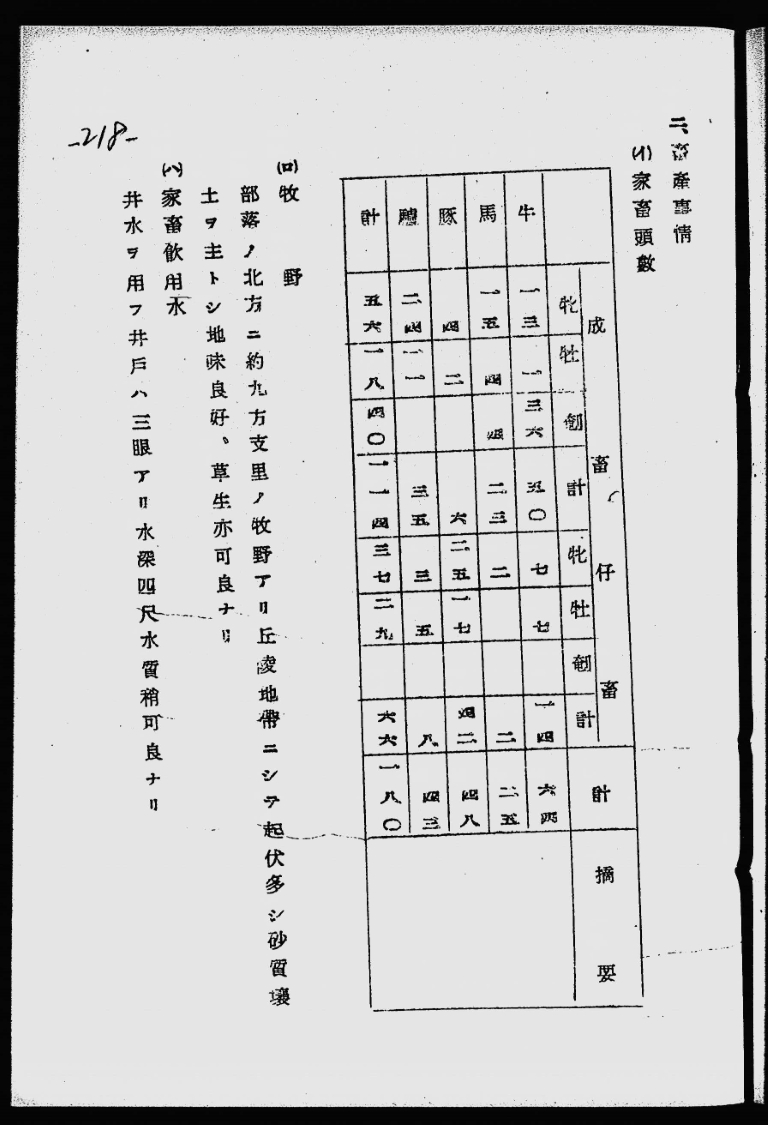 二、畜產事情
(イ)家畜頭數
成畜 仔畜 計 摘要
牝 牡 計 牝 牡 計
牛 一三 一 三六 五〇 七 七 一四 六四
馬 一五 四 四 二三 二 二 二五
豚 四 二 六 二五 一七 四二 四八
驢 二四 一一 三五 三 五 八 四三
計 五六 一八 四〇 一一四 三七 二九 六六 一八〇
(ロ)牧野
部落ノ北方ニ約九方支里ノ牧野アリ丘陵地帶ニシテ起伏多シ砂質壤
土ヲ主トシ地味良好、草生亦可良ナリ
(ハ)家畜飲用水
井水ヲ用フ井戶ハ三眼アリ水深四尺水質稍可良ナリ
-218-